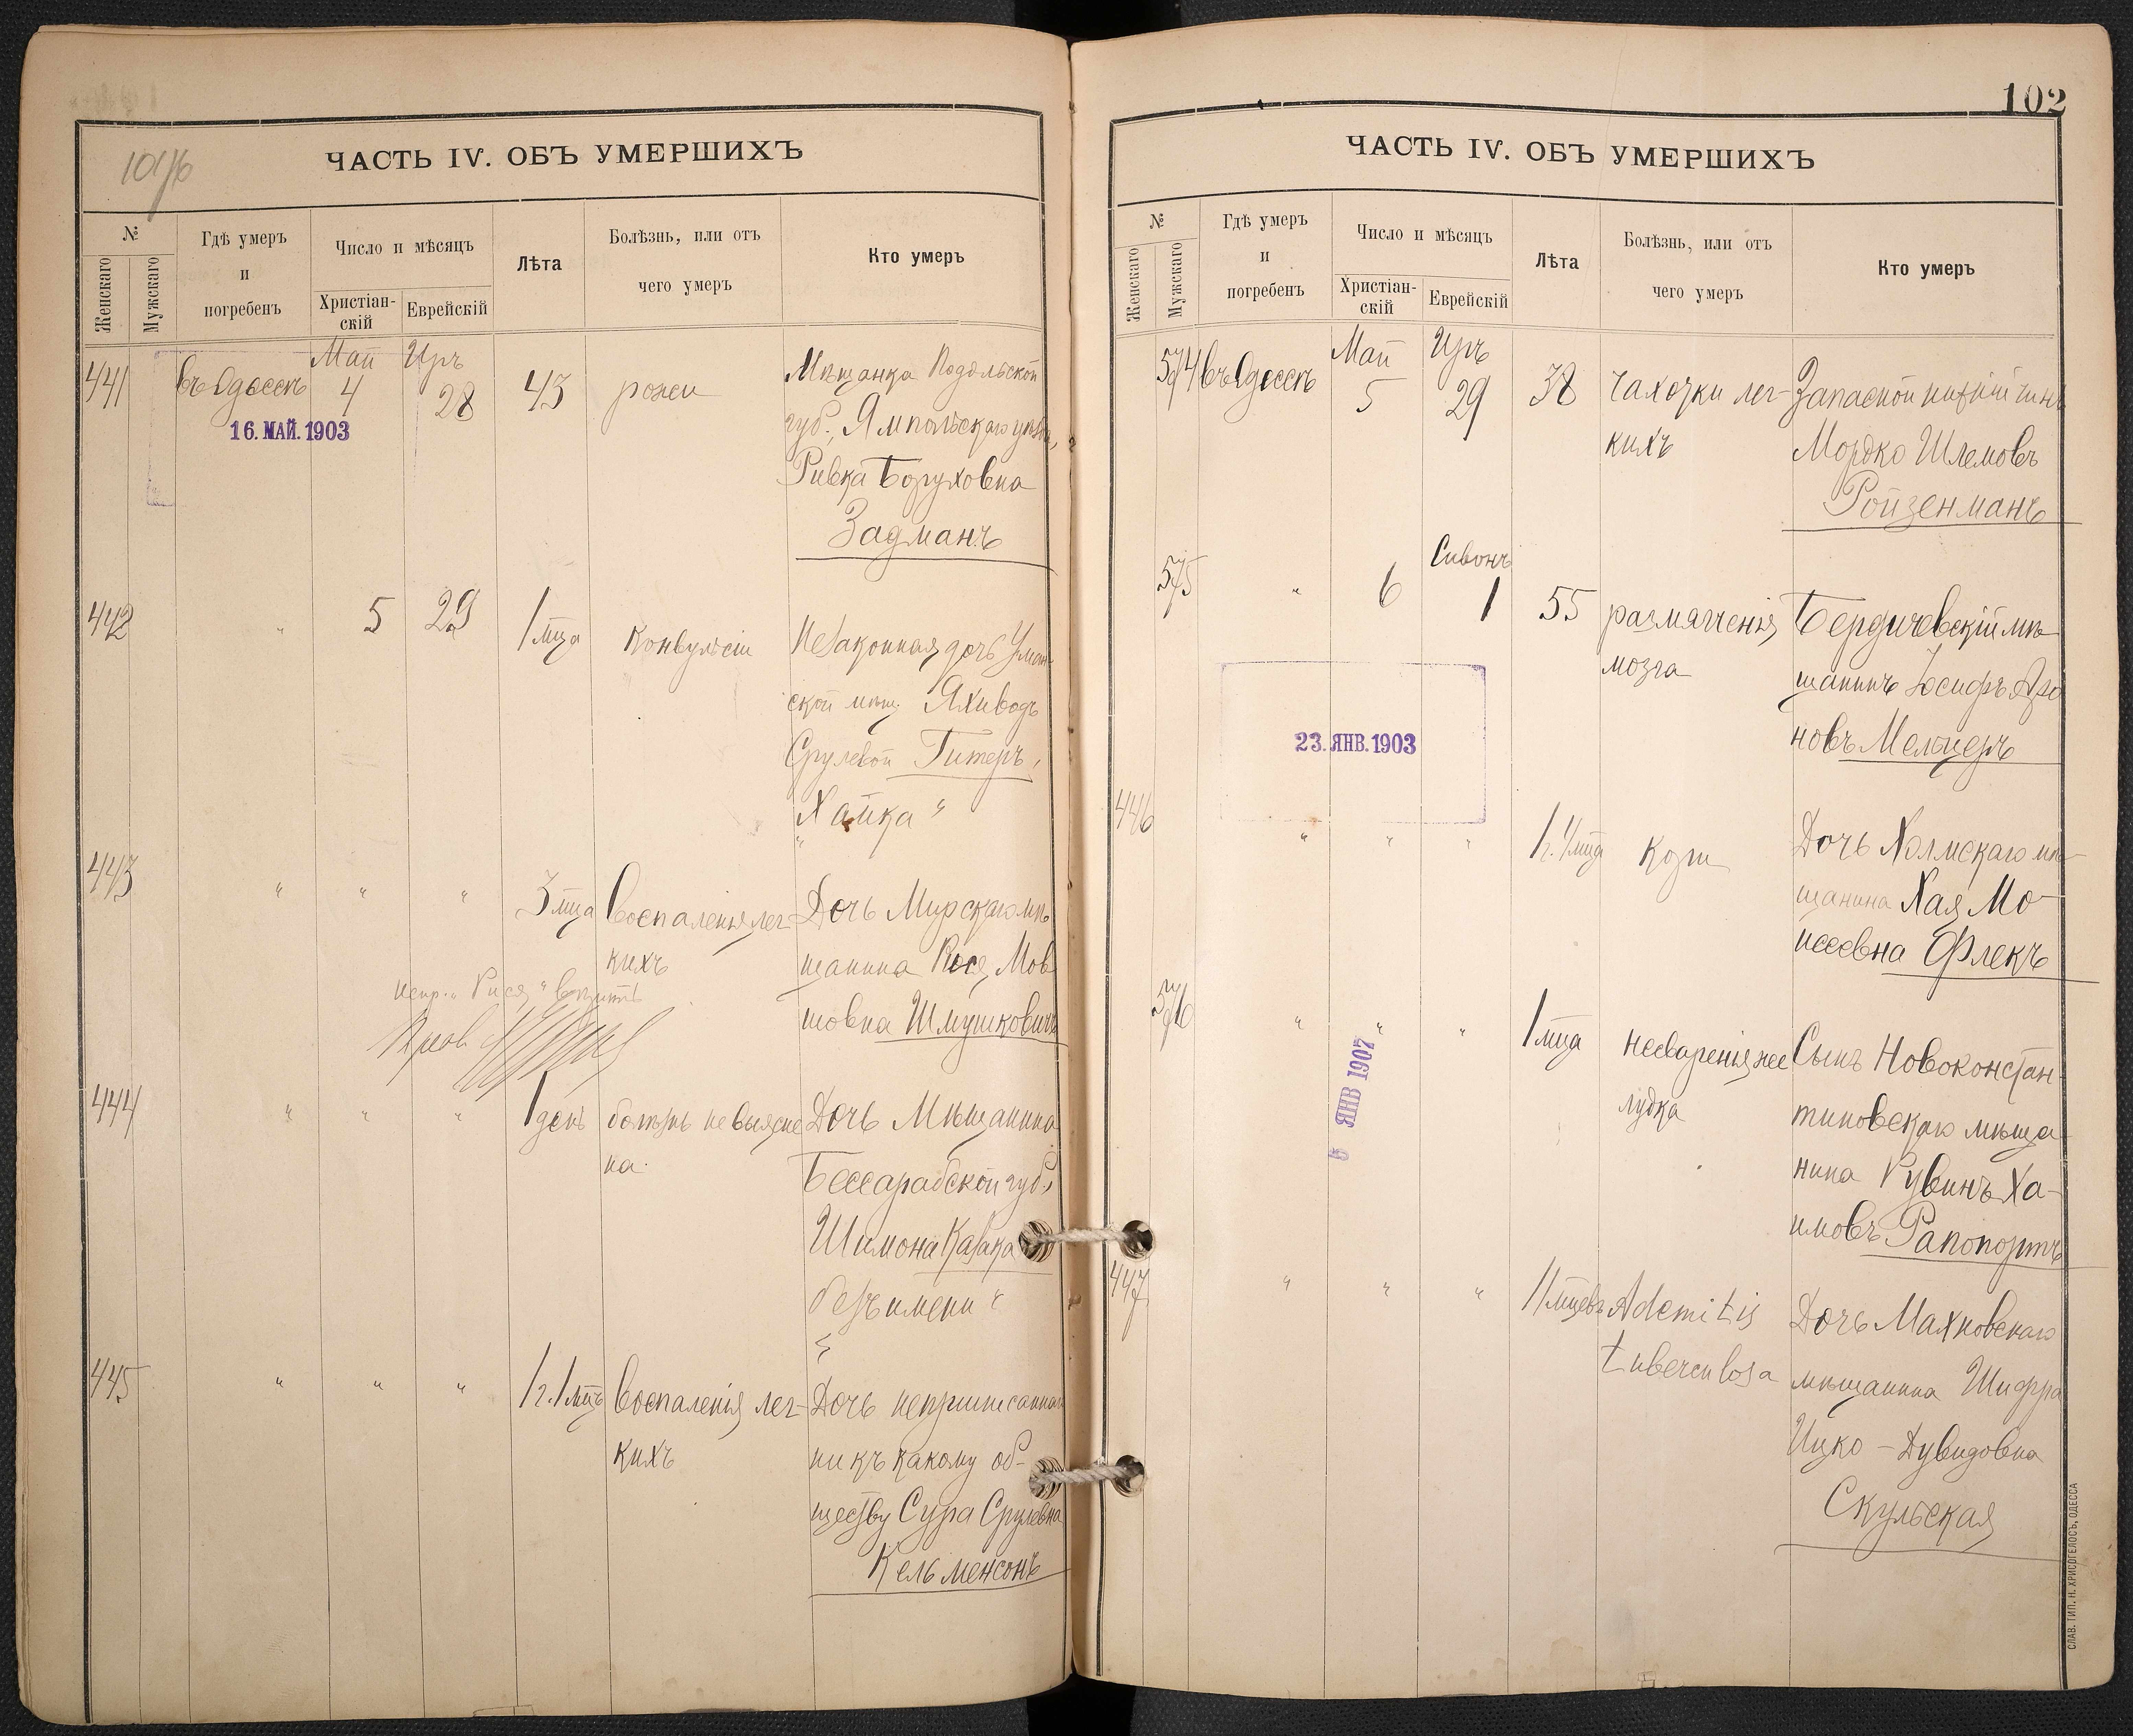 101/6
ЧАСТЬ IV. ОБЪ УМЕРШИХЪ
№
Женскаго
Мужскаго
Гдѣ умеръ
и
погребенъ
Число и мѣсяцъ
Христіан-
скій
Еврейскій
Лѣта
Болѣзнь, или отъ
чего умеръ
Кто умеръ
441
въ Одессѣ
Май
4
Иръ
28
16. МАЙ. 1903
43
рожи
Мѣщанка Подольской
губ., Ямпольскаго уѣзда,
Ривка Боруховна
Задманъ
442
"
5
29
1 мца
Конвульсіи
Незаконная дочь Уман-
ской мѣщ. Яхиводъ
Срулевой Гитеръ,
"Хайка"
443
" " "
3 мца
Воспаленія лег-
кихъ
Дочь Мирскаго мѣ
щанина Рися Мов
шовна Шмушковичъ
испр. "Рися" вѣрить
444
" " "
1 день
болѣзнь не выясне
на.
Дочь Мѣщанина
Бессарабской губ.,
Шимона Казака
"Безъ имени"
445
" " "
1 г. 1 мцъ
Воспаленія лег-
кихъ
Дочь неприписанная
ни къ какому об-
ществу Сура Срулевна
Кельменсонъ
102
ЧАСТЬ IV. ОБЪ УМЕРШИХЪ
№
Женскаго
Мужскаго
Гдѣ умеръ
и
погребенъ
Число и мѣсяцъ
Христіан-
скій
Еврейскій
Лѣта
Болѣзнь, или отъ
чего умеръ
Кто умеръ
574
въ Одессѣ
Май
5
Иръ
29
38
Чахотки лег-
кихъ
Запасной нижній чинъ
Мордко Шлемовъ
Ройзенманъ
575
"
6
Сивонъ
1
55
размягченія
мозга
Бердичевскій мѣ
щанинъ Іосифъ Аро
новъ Мельцеръ
23. ЯНВ. 1903
446
" " "
Кори
Дочь Холмскаго мѣ-
щанина Хая Мо-
исеевна Флекъ
576
" " "
ЯНВ 1907
1 мца
несваренія же
лудка
Сынъ Новоконстан-
тиновскаго мѣща-
нина Рувинъ Ха-
имовъ Рапопортъ
447
" " "
11 мцевъ
Adenitis
tuberculosa
Дочь Махновскаго
мѣщанина Шифра
Ицко-Дувидовна
Скульская
СЛАВ. ТИП. Н. ХРИСОГЕЛОСЪ, ОДЕССА